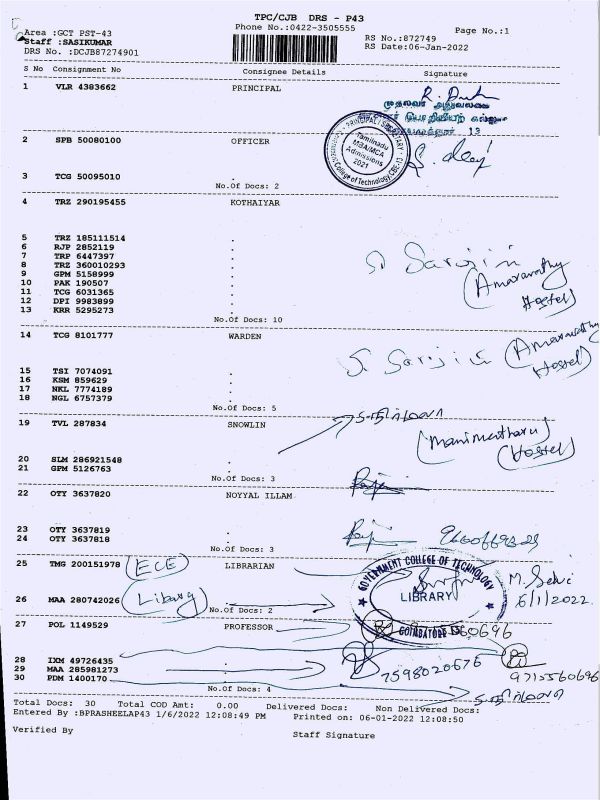 TPC/CJB DRS - P43
Area :GCT PST-43 Phone No.:0422-3505555 Page No.:1
Staff :SASIKUMAR RS No.:872749
DRS No. :DCJB87274901 RS Date:06-Jan-2022
S No Consignment No Consignee Details Signature
1 VLR 4383662 PRINCIPAL
முதல்வர் அலுவலகம்
13
PRINCIPAL / SECRETARY
Tamilnadu
MBA/MCA
Admissions
2021
College of Technology, CBE-13
2 SPB 50080100 OFFICER
3 TCG 50095010 .
No.Of Docs: 2
4 TRZ 290195455 KOTHAIYAR
5 TRZ 185111514 .
6 RJP 2852119 .
7 TRP 6447397 .
8 TRZ 360010293 .
9 GPM 5158999 .
10 PAK 190507 .
11 TCG 6031365 .
12 DPI 9983899 .
13 KRR 5295273 .
S. Sarojini
(Amaravathy
Hostel)
No.Of Docs: 10
14 TCG 8101777 WARDEN
S. Sarojini (Amaravathy
Hostel)
15 TSI 7074091 .
16 KSM 859629 .
17 NKL 7774189 .
18 NGL 6757379 .
No.Of Docs: 5
19 TVL 287834 SNOWLIN
(Manimutharu)
(Hostel)
20 SLM 286921548 .
21 GPM 5126763 .
No.Of Docs: 3
22 OTY 3637820 NOYYAL ILLAM
23 OTY 3637819 .
24 OTY 3637818 .
No.Of Docs: 3
25 TMG 200151978 (ECE) LIBRARIAN
26 MAA 280742026 (Library) .
No.Of Docs: 2
GOVERNMENT COLLEGE OF TECHNOLOGY
LIBRARY
COIMBATORE
M. Selvi
6/1/2022
27 POL 1149529 PROFESSOR
28 IXM 49726435 .
29 MAA 285981273 .
30 PDM 1400170 .
7598020676
9715560696
No.Of Docs: 4
Total Docs: 30 Total COD Amt: 0.00 Delivered Docs: Non Delivered Docs:
Entered By :BPRASHEELAP43 1/6/2022 12:08:49 PM Printed on: 06-01-2022 12:08:50
Verified By Staff Signature